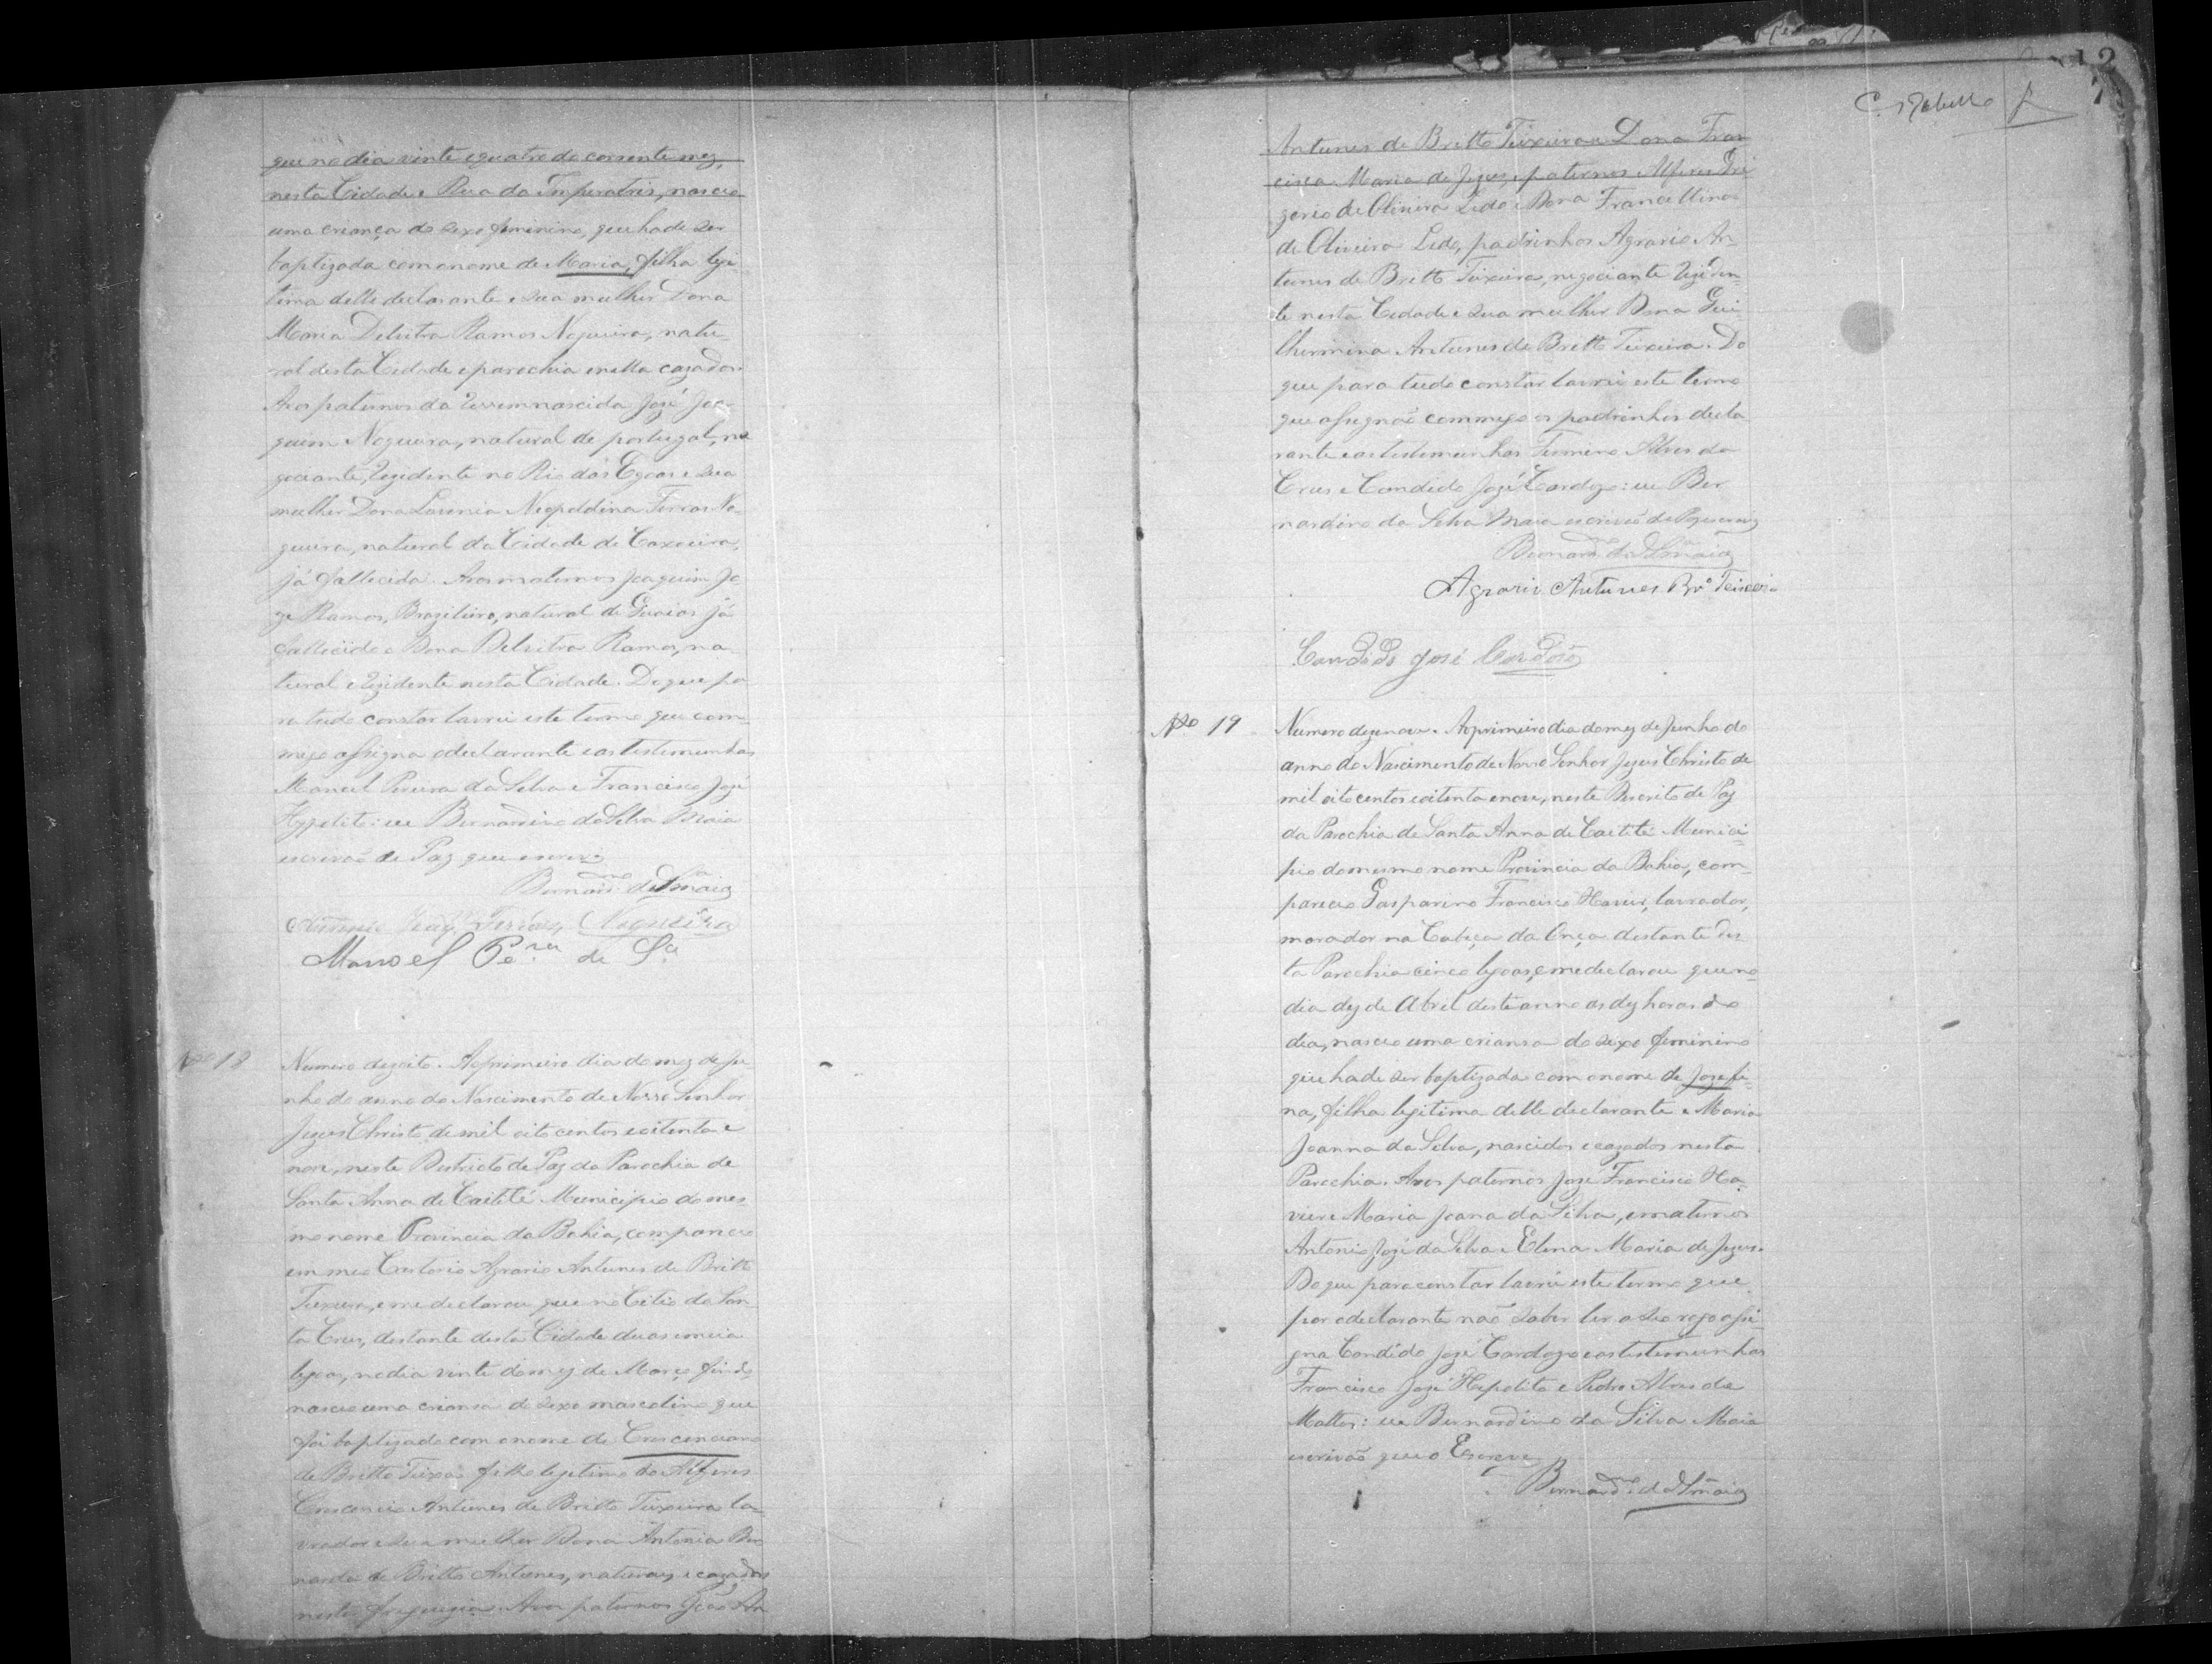 que no dia vinte e quatro do corrente mez,
nesta Cidade e Rua da Imperatris, nasceo
uma criança do sexo feminino, que hade ser
baptizada com o nome de Maria, filha legi-
tima delle declarante e sua mulher Dona
Maria Ramos Nogueira, natu-
ral desta Cidade e parochia e nella cazados.
Avos paternos da ressemnascida José Joa-
quim Nogueira, natural de portugal, ne
gociante, rezidente no Rio das Egoas e sua
mulher Dona Neopoldina Ferras No-
gueira, natural da Cidade de Caxoeira,
já fallecida. Avos maternos Joaquim Jo-
ze Ramos, Brazileiro, natural de Guaias já
fallecido e Dona Ramos, na-
tural e rezidente nesta Cidade. Do que pa-
ra tudo constar lavrei este termo que com-
migo assigna o declarante e as testimunhas
Manoel Pereira da Silva e Francisco José
Hypolito: eu Bernardino da Silva Maia
escrivaõ de Paz que escrevi
Bernardno da Sa Maia
Antonio Joaqm Ferras Nogueira
Manoel Pe.ra da S.a
No 18
Numero dezoito. Ao primeiro dia do mez de Ju
nho do anno do Nascimento de Nosso Senhor
Jezus Christo de mil oito centos e oitenta e
nove, neste Districto de Paz da Parochia de
Santa Anna de Caitité Municipio do mes-
mo nome Provincia da Bahia, compareceo
em meo Cartorio Agrario Antunes de Britto
Teixeira, e me declarou que no Citio da San-
ta Crus, distante desta Cidade duas e meia
legoas, no dia vinte do mez de Março findo,
nasceo uma criansa do sexo mascolino que
foi baptizado com o nome de Crescenciano
de Britto Teixra filho legitimo do Alferes
Crescencio Antunes de Britto Teixeira la-
vrador e sua mulher Dona Antonia Ber
narda de Britto Antunes, naturaes e cazados
nesta freguezia. Avos paternos João An
C. Rabello
12
7
Antunes de Britto Teixeira e Dona Fran
cisca Maria de Jezus, e paternos Alferes Gri
gorio de Oliveira Ledo e Dona Francellina
de Oliveira Ledo, padrinhos Agrario An-
tunes de Britto Teixeira, negociante reziden-
te nesta Cidade e sua mulher Dona Gui
lhermina Antunes de Britto Teixeira. Do
que para tudo constar lavrei este termo
que assignaõ commigo os padrinhos decla
rante e as testimunhas Firmino Alves da
Crus e Candido José Cardozo: eu Ber
nardino da Silva Maia escrivaõ de Paz escrevi
Bernardno da Sa Maia
Agrario Antunes Bro Teixeira
Candido José Cardozo
No 19
Numero dezenove. Ao primeiro dia do mez de Junho do
anno do Nascimento de Nosso Senhor Jezus Christo de
mil oito centos e oitenta e nove, neste Discrito de Paz
da Parochia de Santa Anna de Caitité Munici
pio do mesmo nome Provincia da Bahia, com-
pareceo Gasparino Francisco Xavier, lavrador,
morador na Cabeça da Onça distante des
ta Parochia cinco legoas, e me declarou que no
dia dez de Abril deste anno as dez horas do
dia, nasceo uma criansa do sexo feminino
que hade ser baptizada com o nome de Jozefi-
na, filha legitima delle declarante e Maria
Joanna da Silva, nascidos e cazados nesta
Parochia. Avos paternos José Francisco Xa-
vier e Maria Joana da Silva, e maternos
Antonio José da Silva e Elena Maria de Jezus.
Do que para constar lavrei este termo que
por o declarante naõ saber ler a seo rogo assi
gna Candido José Cardozo e as testimunhas
Francisco José Hypolito e Pedro Alves de
Mattos: eu Bernardino da Silva Maia
escrivaõ que o Escrevi
Bernardno da Sa Maia